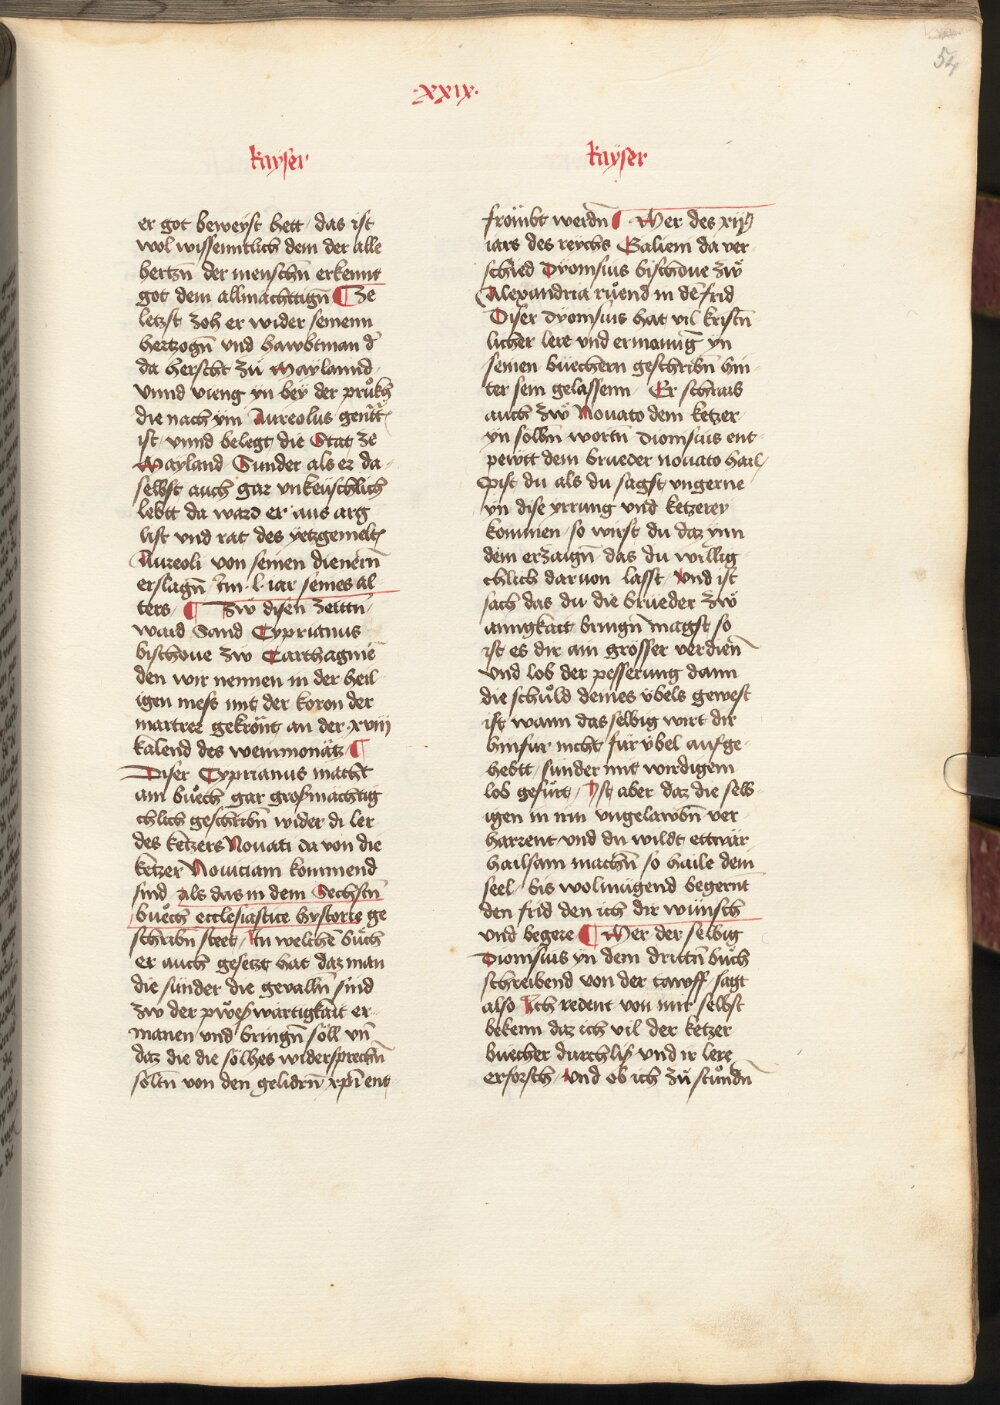 54
·xxix·
kayser
er got beweyst hett / das ist
wol wissenntlich dem der alle
hertzn̄ der menschn̄ erkennt
got dem allmachttign̄ ¶ Ze
letzst zoh er wider seinenn
hertzogn̄ vnd hawbtman d'
da herscht zu Maylannd /
vnnd vieng yn bey der prukh
die nach ym Aureolus genn̄t
ist / vnnd belegt die Stat ze
Mayland / Sunder als er da
selbst auch gar vnkeuschlich
lebtt da ward er aus arg
list vnd rat des yetzgemelt̄
Aureoli von seinen dienern̄
erslagn̄ Im ·l· iar seines al
ters / ¶ Zw disen zeittn̄
ward Sand Cyprianus
bischoue zw Carthaginē
den wir nennen in der heil
igen mess mit der koron der
martrer gekrönt an der xviij
kalend des weinmonätz ¶
Diser Cyprianus macht
ain buech gar grosmachtig
chlich geschribn̄ wider di ler
des ketzers Nouati da von die
ketzer Nouiciani kommend
sind / als das in dem Sechstn̄
buech ecclesiastice hystorie ge
schribn̄ steet / In welchē buch
er auch gesetzt hat daz man
die sunder die geualln̄ sind
zw der pwesswartigkait er
manen vnd bringn̄ söll vn̄
daz die die solhes widersprechn̄
soltn̄ von den gelidrn̄ xpī ent
kayser
frömbt werdn̄ ¶ Mer des xiiij
iars des reychs Galieni da ver
schied dyonisius bischoue zw
Alexandria ruend in dē frid
Diser dyonisius hat vil kristn̄
licher lere vnd ermonūg yn
seinen buechern geschribn̄ hin
ter sein gelassenn / Er schraib
auch zw Nouato dem ketzer
yn solhn̄ wortn̄ dionisius ent
pewtt dem brueder nouato hail /
Pist du als du sagst vngerne
yn dise yrrung vnd ketzerey
kommen / so wirst du daz ynn
dem erzaign̄ das du willig
chlich daruon lasst / vnd ist
sach das du die brueder zw
ainigkait bringn̄ magst so
ist es dir ain grosser verdien̄
vnd lob der pesserung dann
die schuld deines vbels gewest
ist wann das selbig wirt dir
hinfur nicht für vbel aufge
hebtt / sunder mit wirdigem
lob gefurt / Ist aber daz die selb
igen in irm vngelawbn̄ ver
harrent vnd du wildt ettwar
hailsam machn̄ so haile dem
seel / bis wolmugend begernt
den frid den ich dir wunsch
vnd begere ¶ Mer der selbig
Dionisius yn dem drittn̄ buch
schreibend von der tawff / sagt
also Ich redent von mir selbst
bekenn daz ich vil der ketzer
buecher durchliss vnd ir lere
erforsch / vnd ob ich zu stundn̄